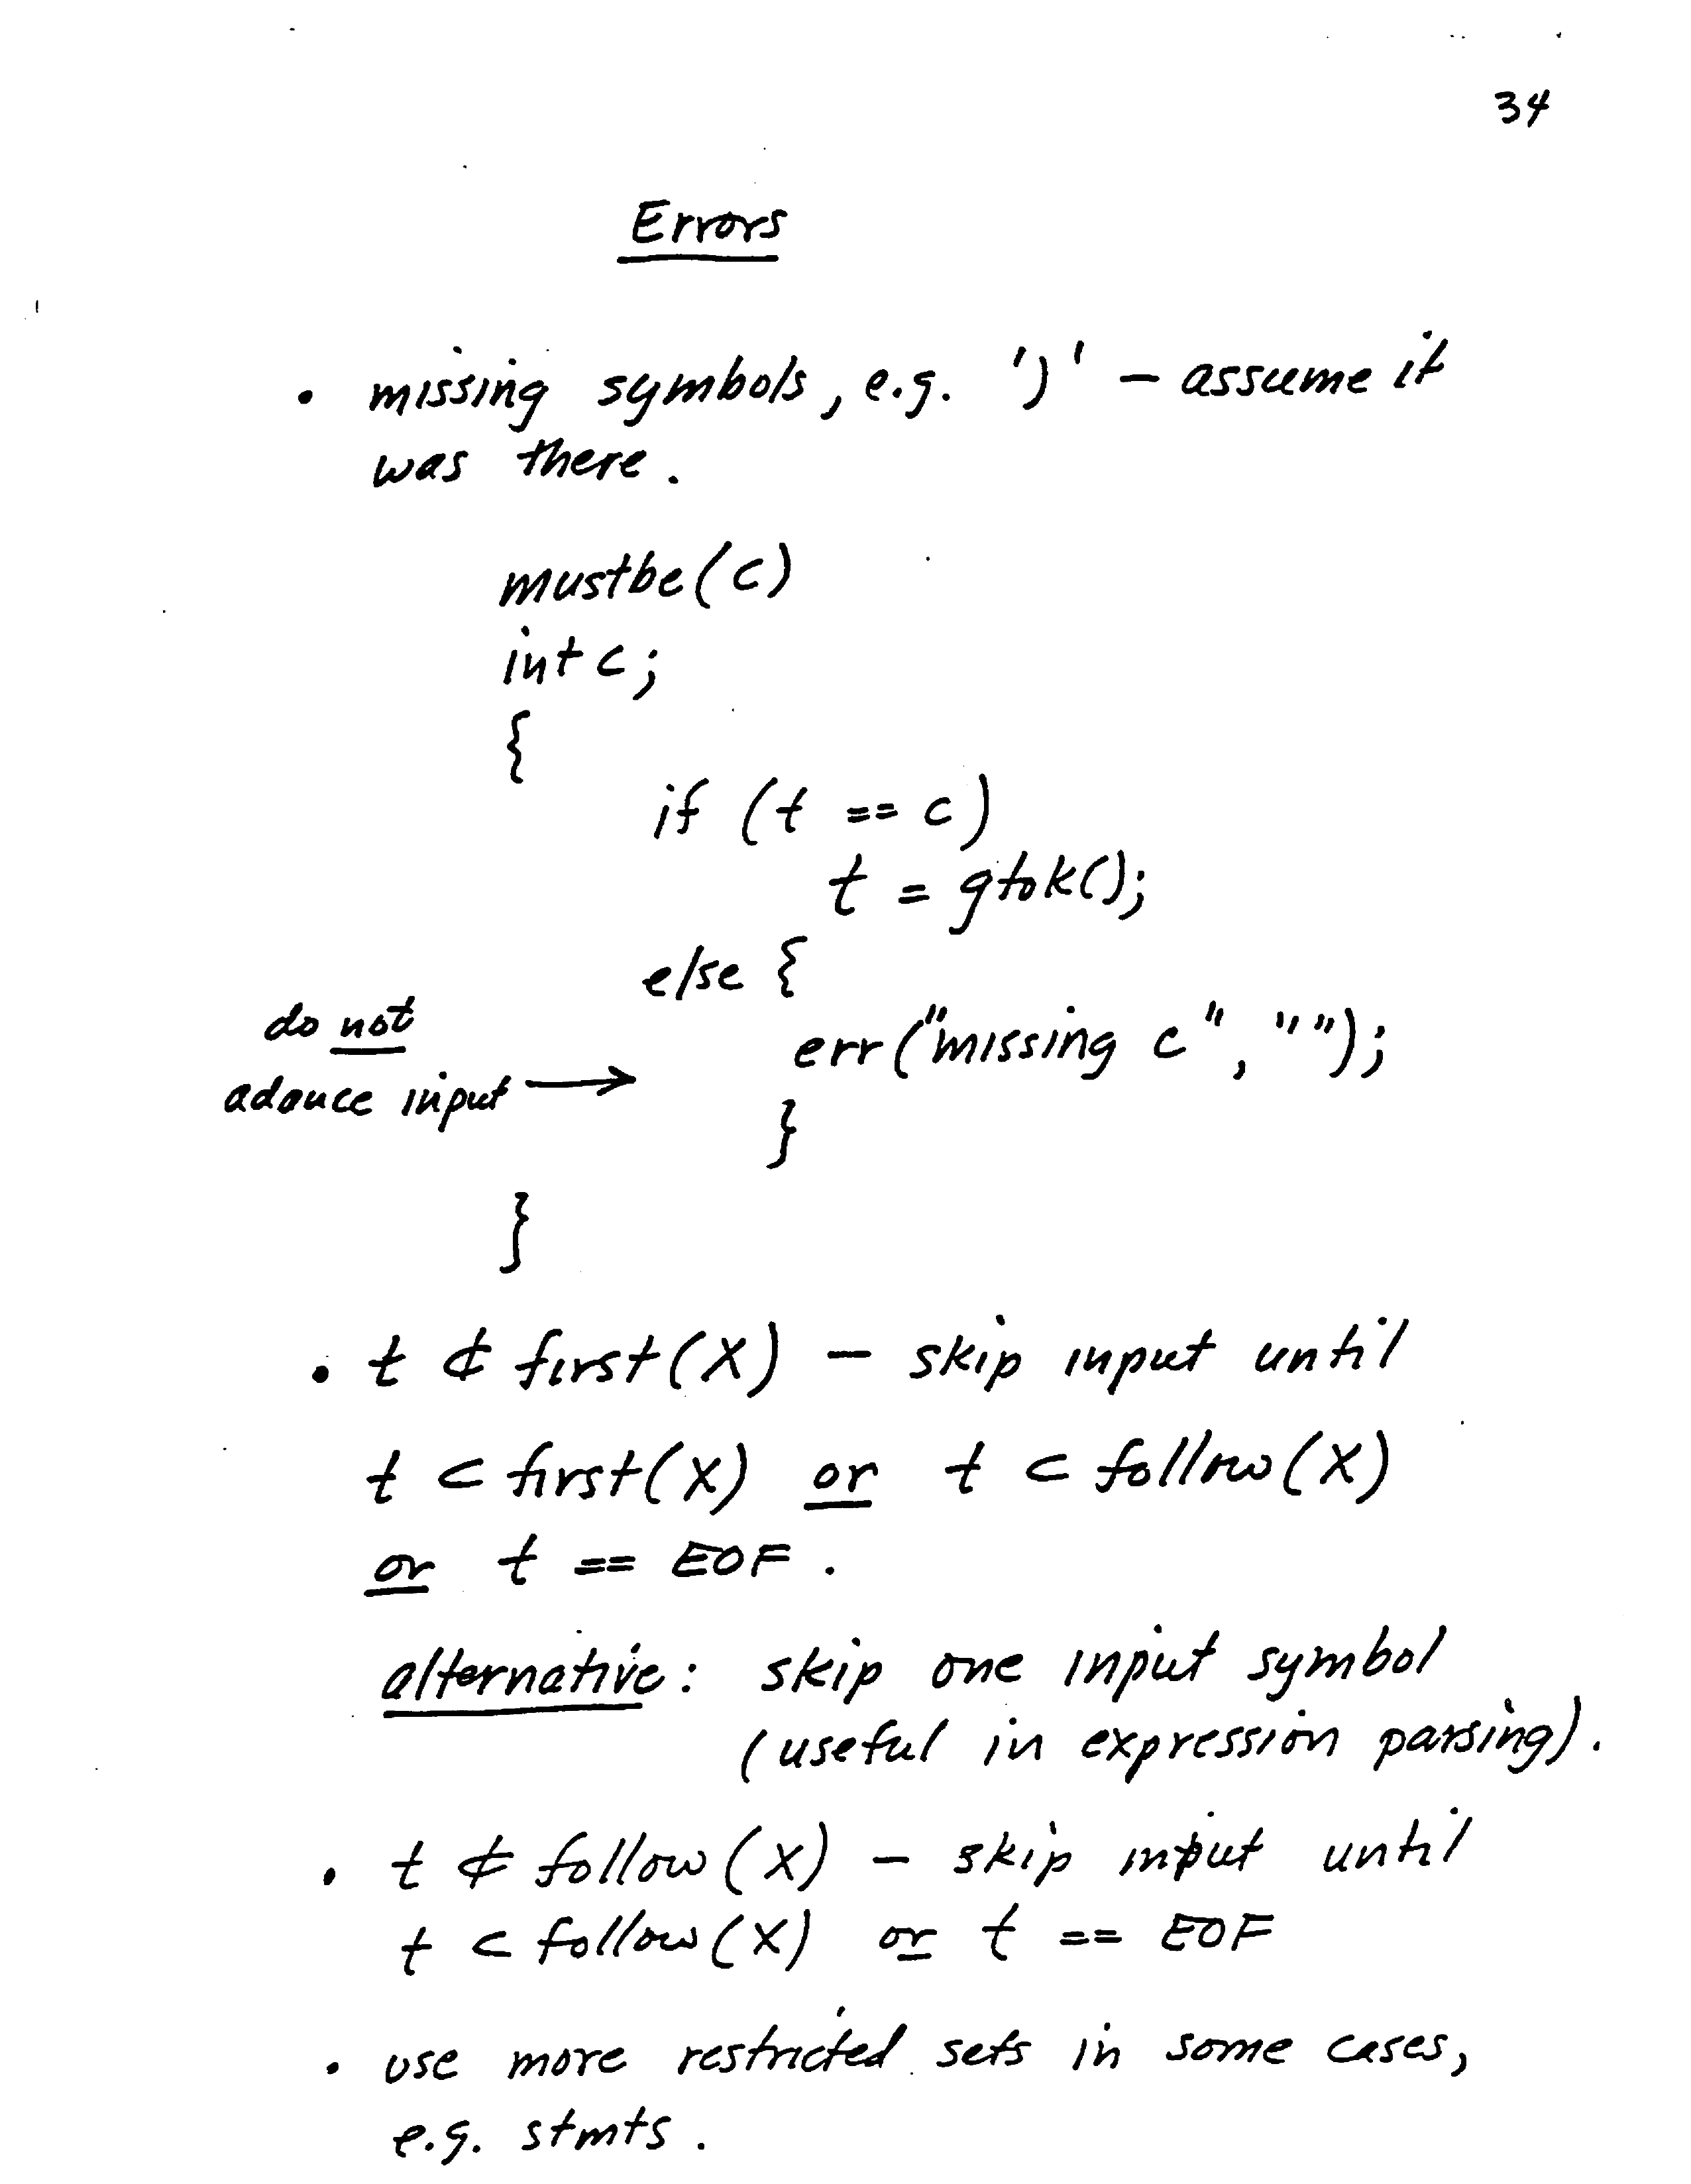 34
Errors
• missing symbols, e.g. ')' — assume it
was there.
mustbe(c)
int c;
{
if (t == c)
t = gtok();
else {
do not
err("missing c", "");
adance input →
}
}
• t ⊄ first(X) — skip input until
t ⊂ first(X) or t ⊂ follow(X)
or t == EOF.
alternative: skip one input symbol
(useful in expression parsing).
• t ⊄ follow(X) — skip input until
t ⊂ follow(X) or t == EOF
• use more restricted sets in some cases,
e.g. stmts.